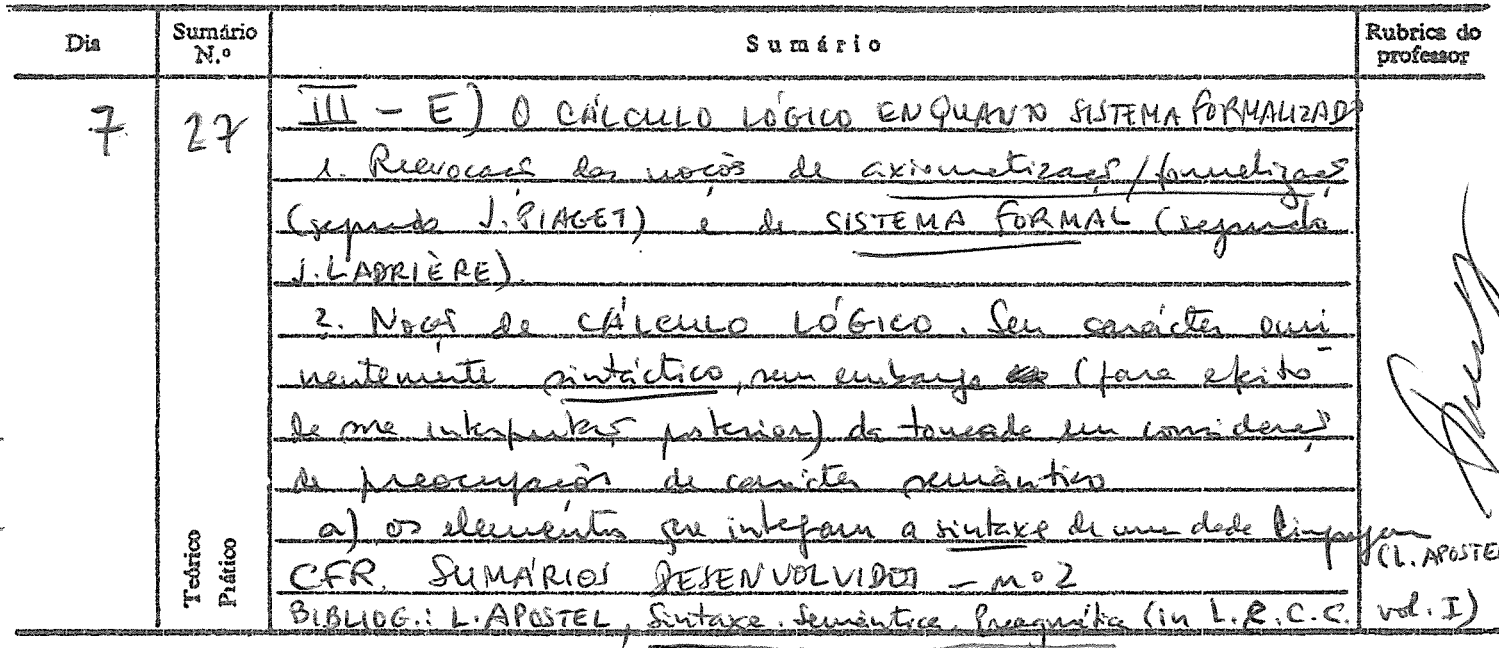 Dia
Sumário N.º
Sumário
Rubrica do professor
7
27
III - E) O CÁLCULO LÓGICO ENQUANTO SISTEMA FORMALIZADO
1. Reevocação das noções de axiomatização/formalização
(segundo J. PIAGET) e de SISTEMA FORMAL (segundo
J. LADRIÈRE).
2. Noção de CÁLCULO LÓGICO. Seu carácter emi
nentemente sintáctico, sem embargo (para efeito
de sua interpretação posterior) da tomada em consideração
de preocupações de carácter semântico
a) os elementos que integram a sintaxe de uma dada linguagem
(L. APOSTEL
CFR. SUMÁRIOS DESENVOLVIDOS - nº 2
BIBLIOG.: L. APOSTEL, Sintaxe. Semântica. Pragmática (in L.R.C.C. vol. I)
Teórico
Prático